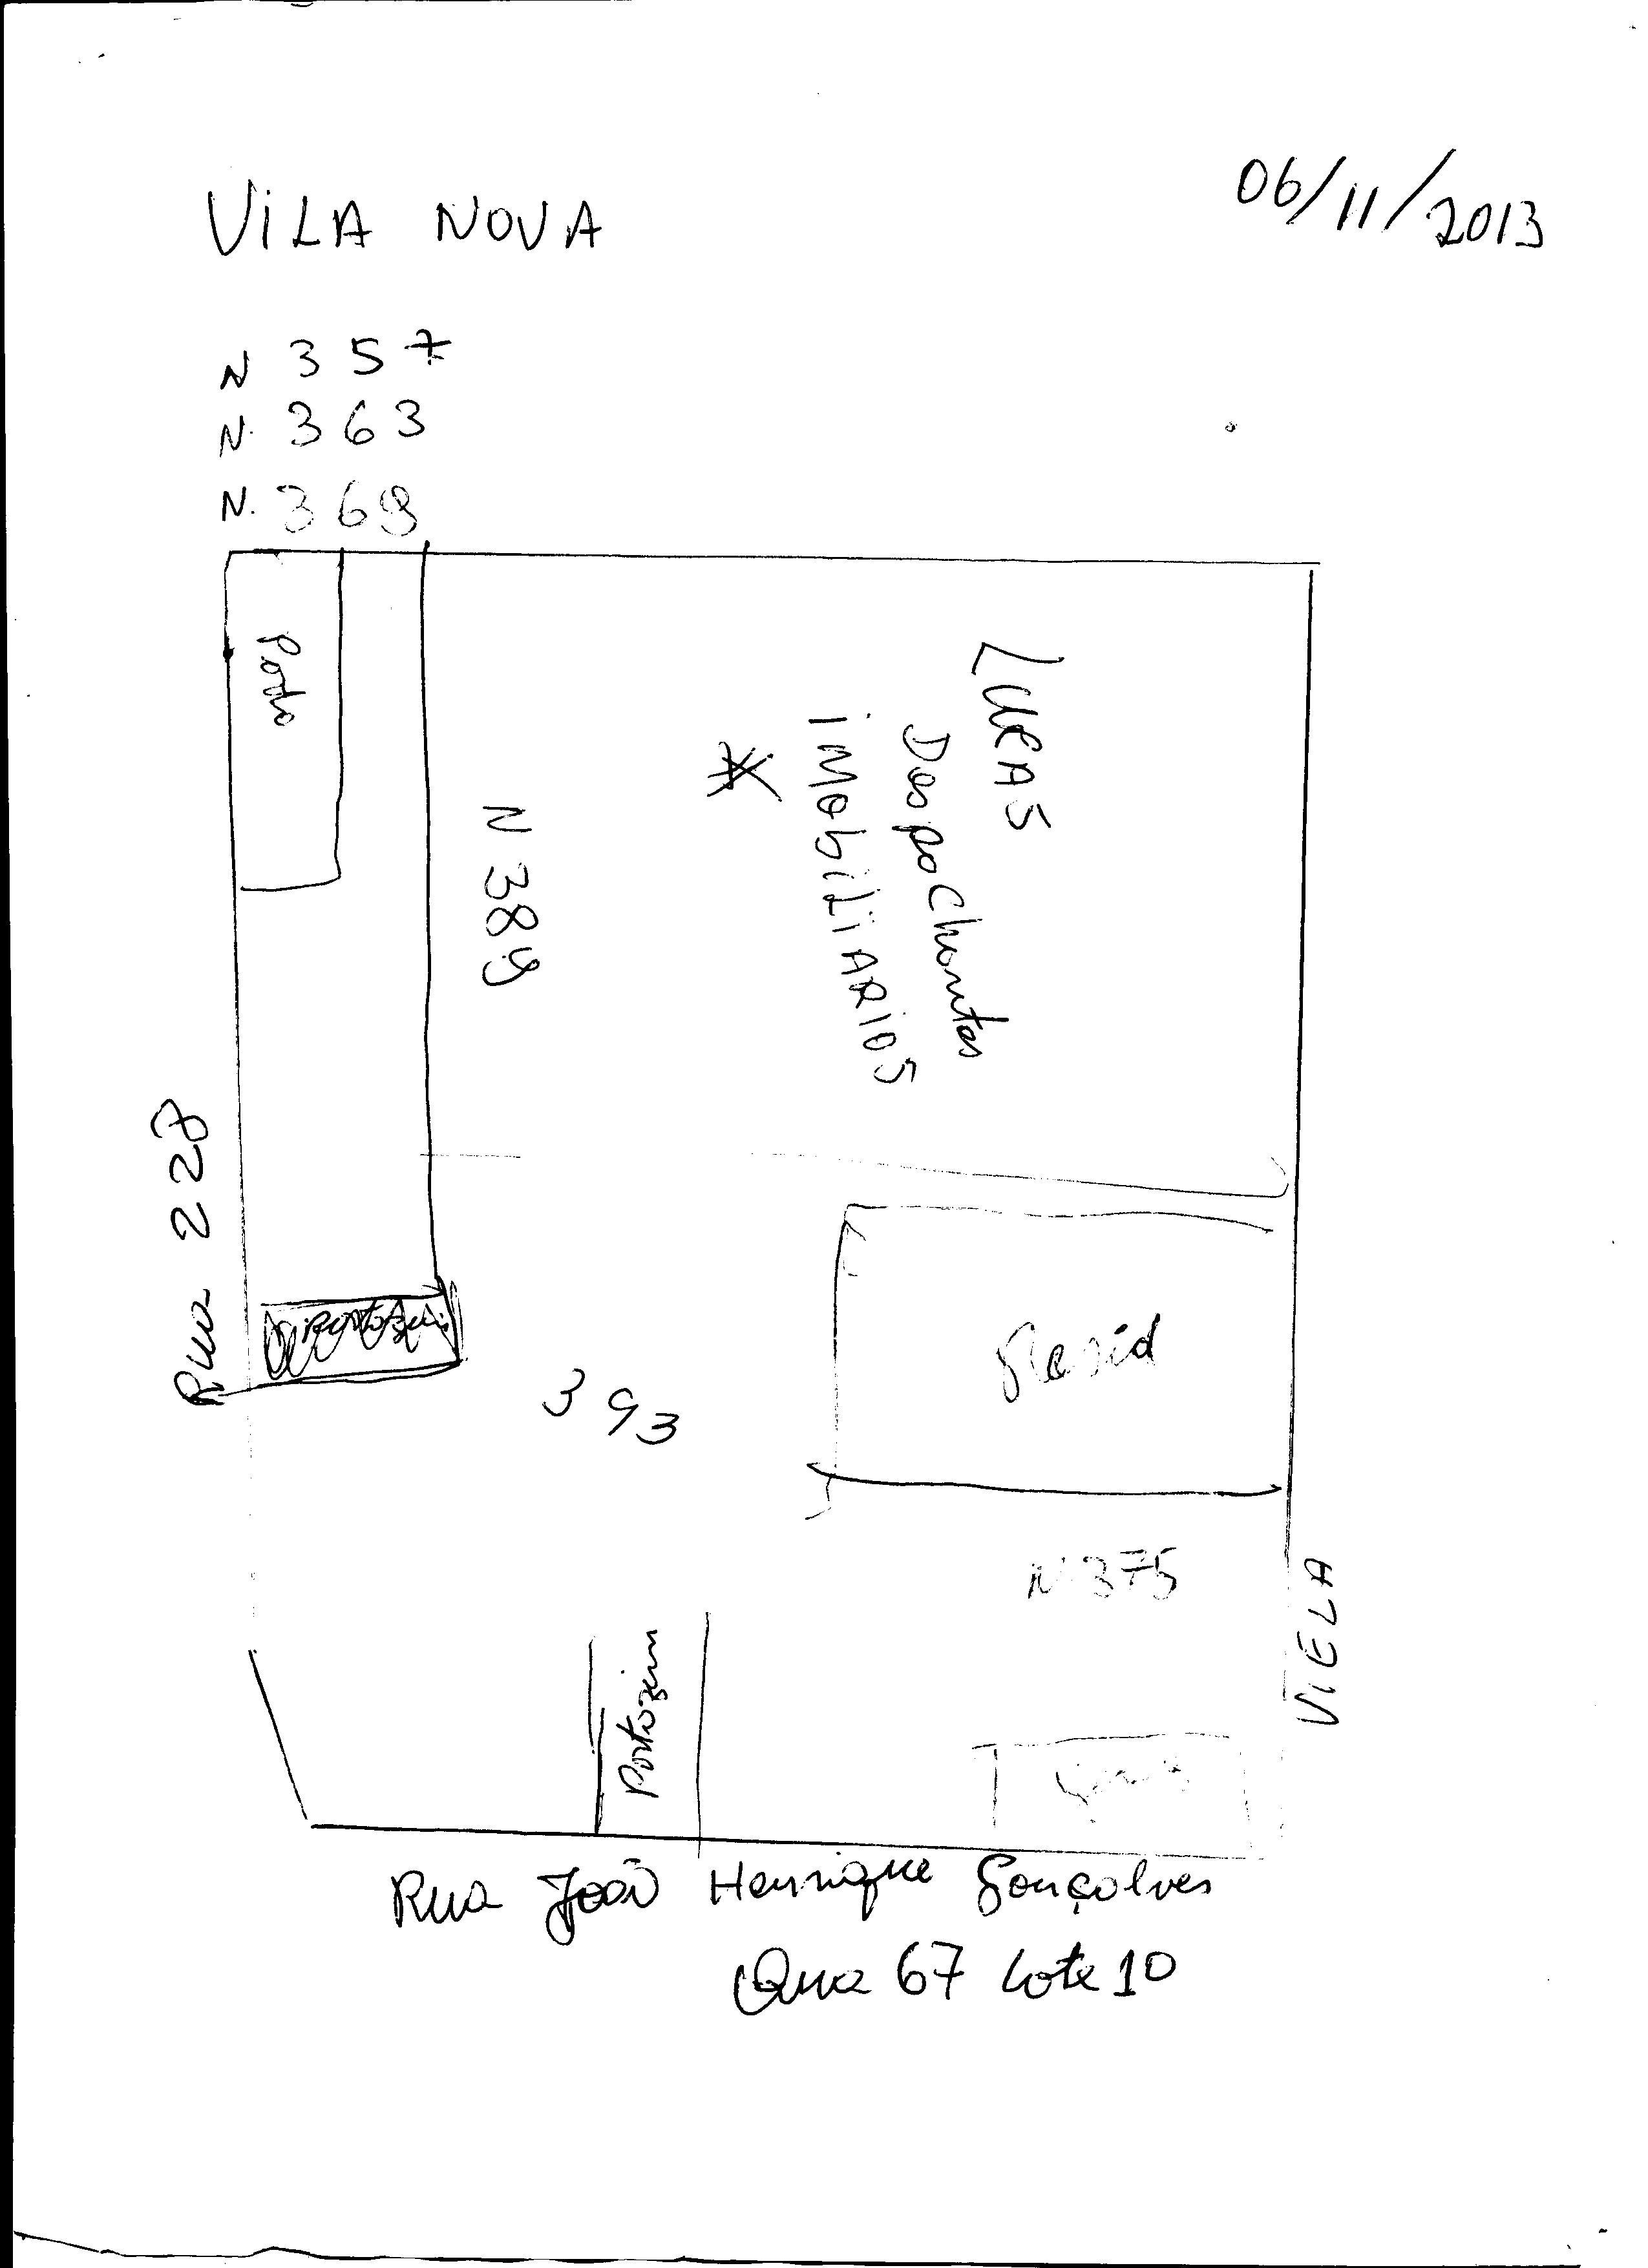 VILA NOVA
06/11/2013
N 357
N. 363
N. 369
Porta
N 389
LUCAS
Despachantes
IMobiLiARIOS
Rua 228
393
Resid
N 375
VIELA
Portozim
Rua João Henrique Gonçolves
Qua 67 Lote 10